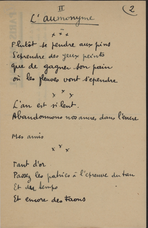 II
2
L'aumonyme
x x x
Plutôt se pendre aux pins
S'éprendre des yeux peints
que de gagner son pain
où les fleuves vont s'épendre
x x x
L'an est si lent.
Abandonnons nos ancres dans l'encre
Mes amis
x x x
Tant d'or
Passez les patries à l'épreuve du
Et des
Et encore des